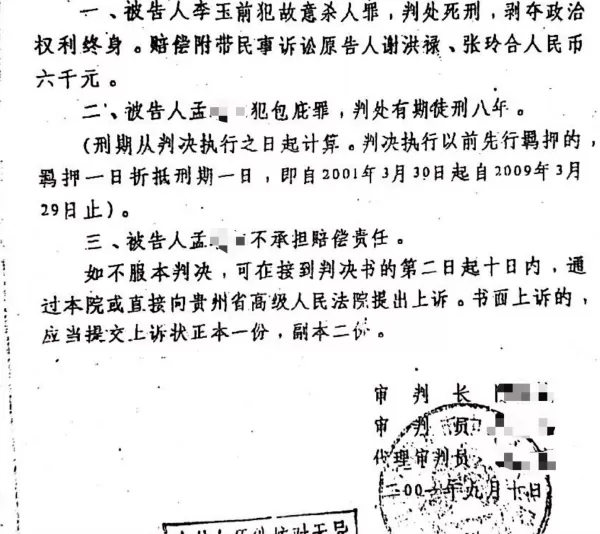 一、被告人李玉前犯故意杀人罪，判处死刑，剥夺政治
权利终身。赔偿附带民事诉讼原告人谢洪禄、张玲合人民币
六千元。
二、被告人孟 犯包庇罪，判处有期徒刑八年。
(刑期从判决执行之日起计算。判决执行以前先行羁押的，
羁押一日折抵刑期一日，即自2001年3月30日起自2009年3月
29日止)。
三、被告人孟 不承担赔偿责任。
如不服本判决，可在接到判决书的第二日起十日内，通
过本院或直接向贵州省高级人民法院提出上诉。书面上诉的，
应当提交上诉状正本一份，副本二份。
审判长
审判员
代理审判员
二00 年九月十日